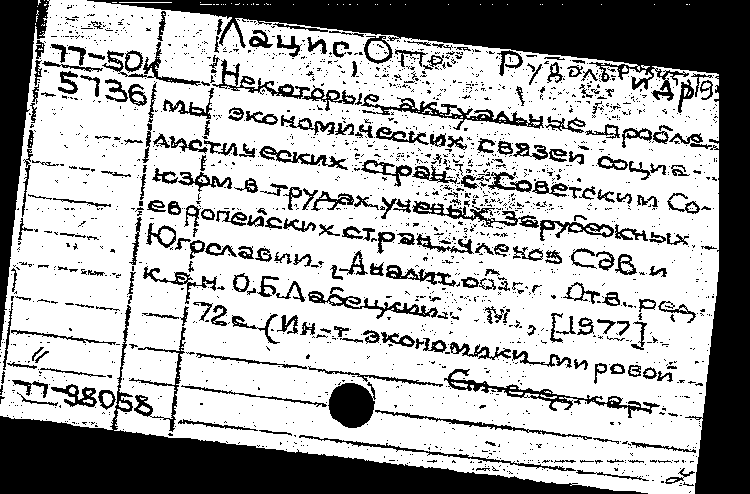 Лацис, Отто Рудольфович, 19
77-50к
и др
5736
Некоторые актуальные пробле-
мы экономических связей социа-
листических стран с Советским Со-
юзом в трудах ученых зарубежных
европейских стран-членов СЭВ и
Югославии. Аналит. обзор. Отв. ред.
к.э.н. О.Б. Лабецкий. М., [1977].
72с (Ин-т экономики мировой
См. след. карт.
77-98058